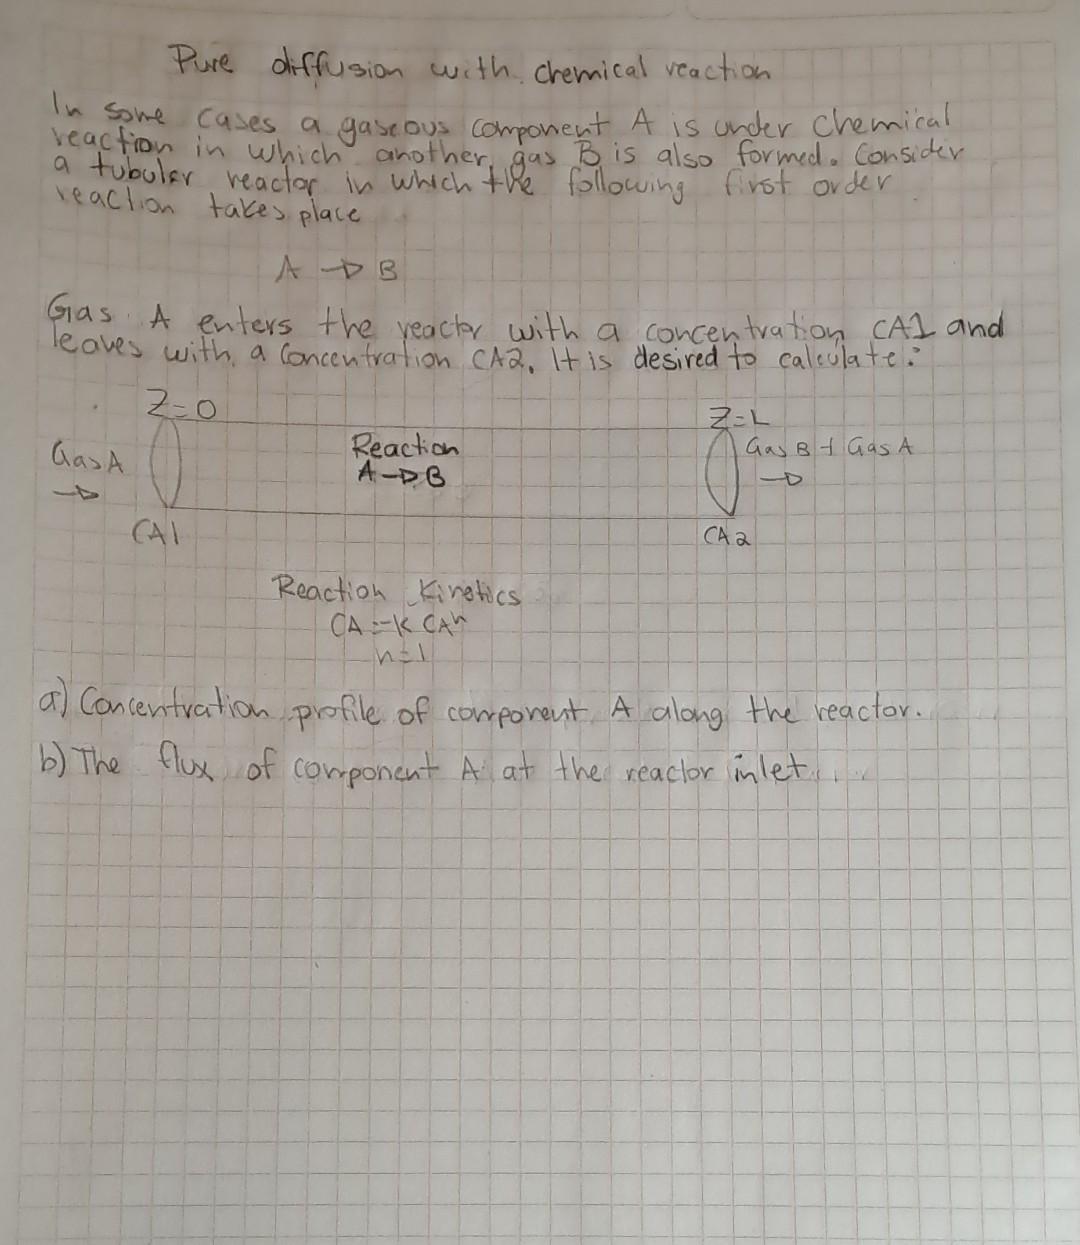 Pure diffusion with chemical reaction
In some cases a gaseous component A is under chemical
reaction in which another gas B is also formed. Consider
a tubular reactor in which the following first order
reaction takes place
A → B
Gas A enters the reactor with a concentration CA1 and
leaves with a concentration CA2. It is desired to calculate:
Z=0
Z=L
Gas A
→
Reaction
A → B
Gas B + Gas A
→
CA1
CA2
Reaction Kinetics
CA = -K CAn
n=1
a) Concentration profile of component A along the reactor.
b) The flux of component A at the reactor inlet...